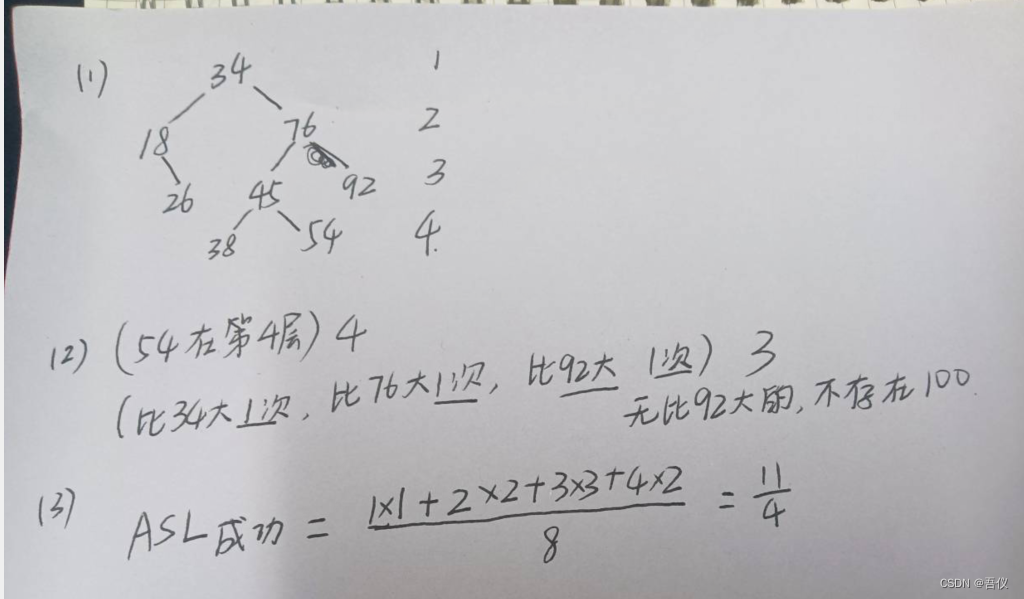 (1) 34 1
18 76 2
26 45 92 3
38 54 4.
(2) (54在第4层) 4
(比34大1次, 比76大1次, 比92大 1次) 3
无比92大的, 不存在100.
(3) ASL成功 = 1×1+2×2+3×3+4×2 / 8 = 11/4
CSDN @吾仪